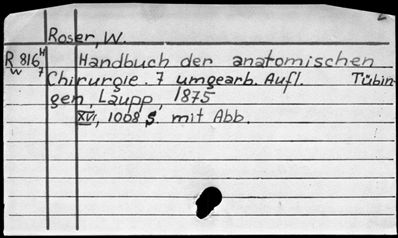 Roser, W.
R 816 H Handbuch der anatomischen
W 7 Chirurgie. 7 umgearb. Aufl. Tübin-
gen, Laupp, 1875
XVI, 1008 S. mit Abb.